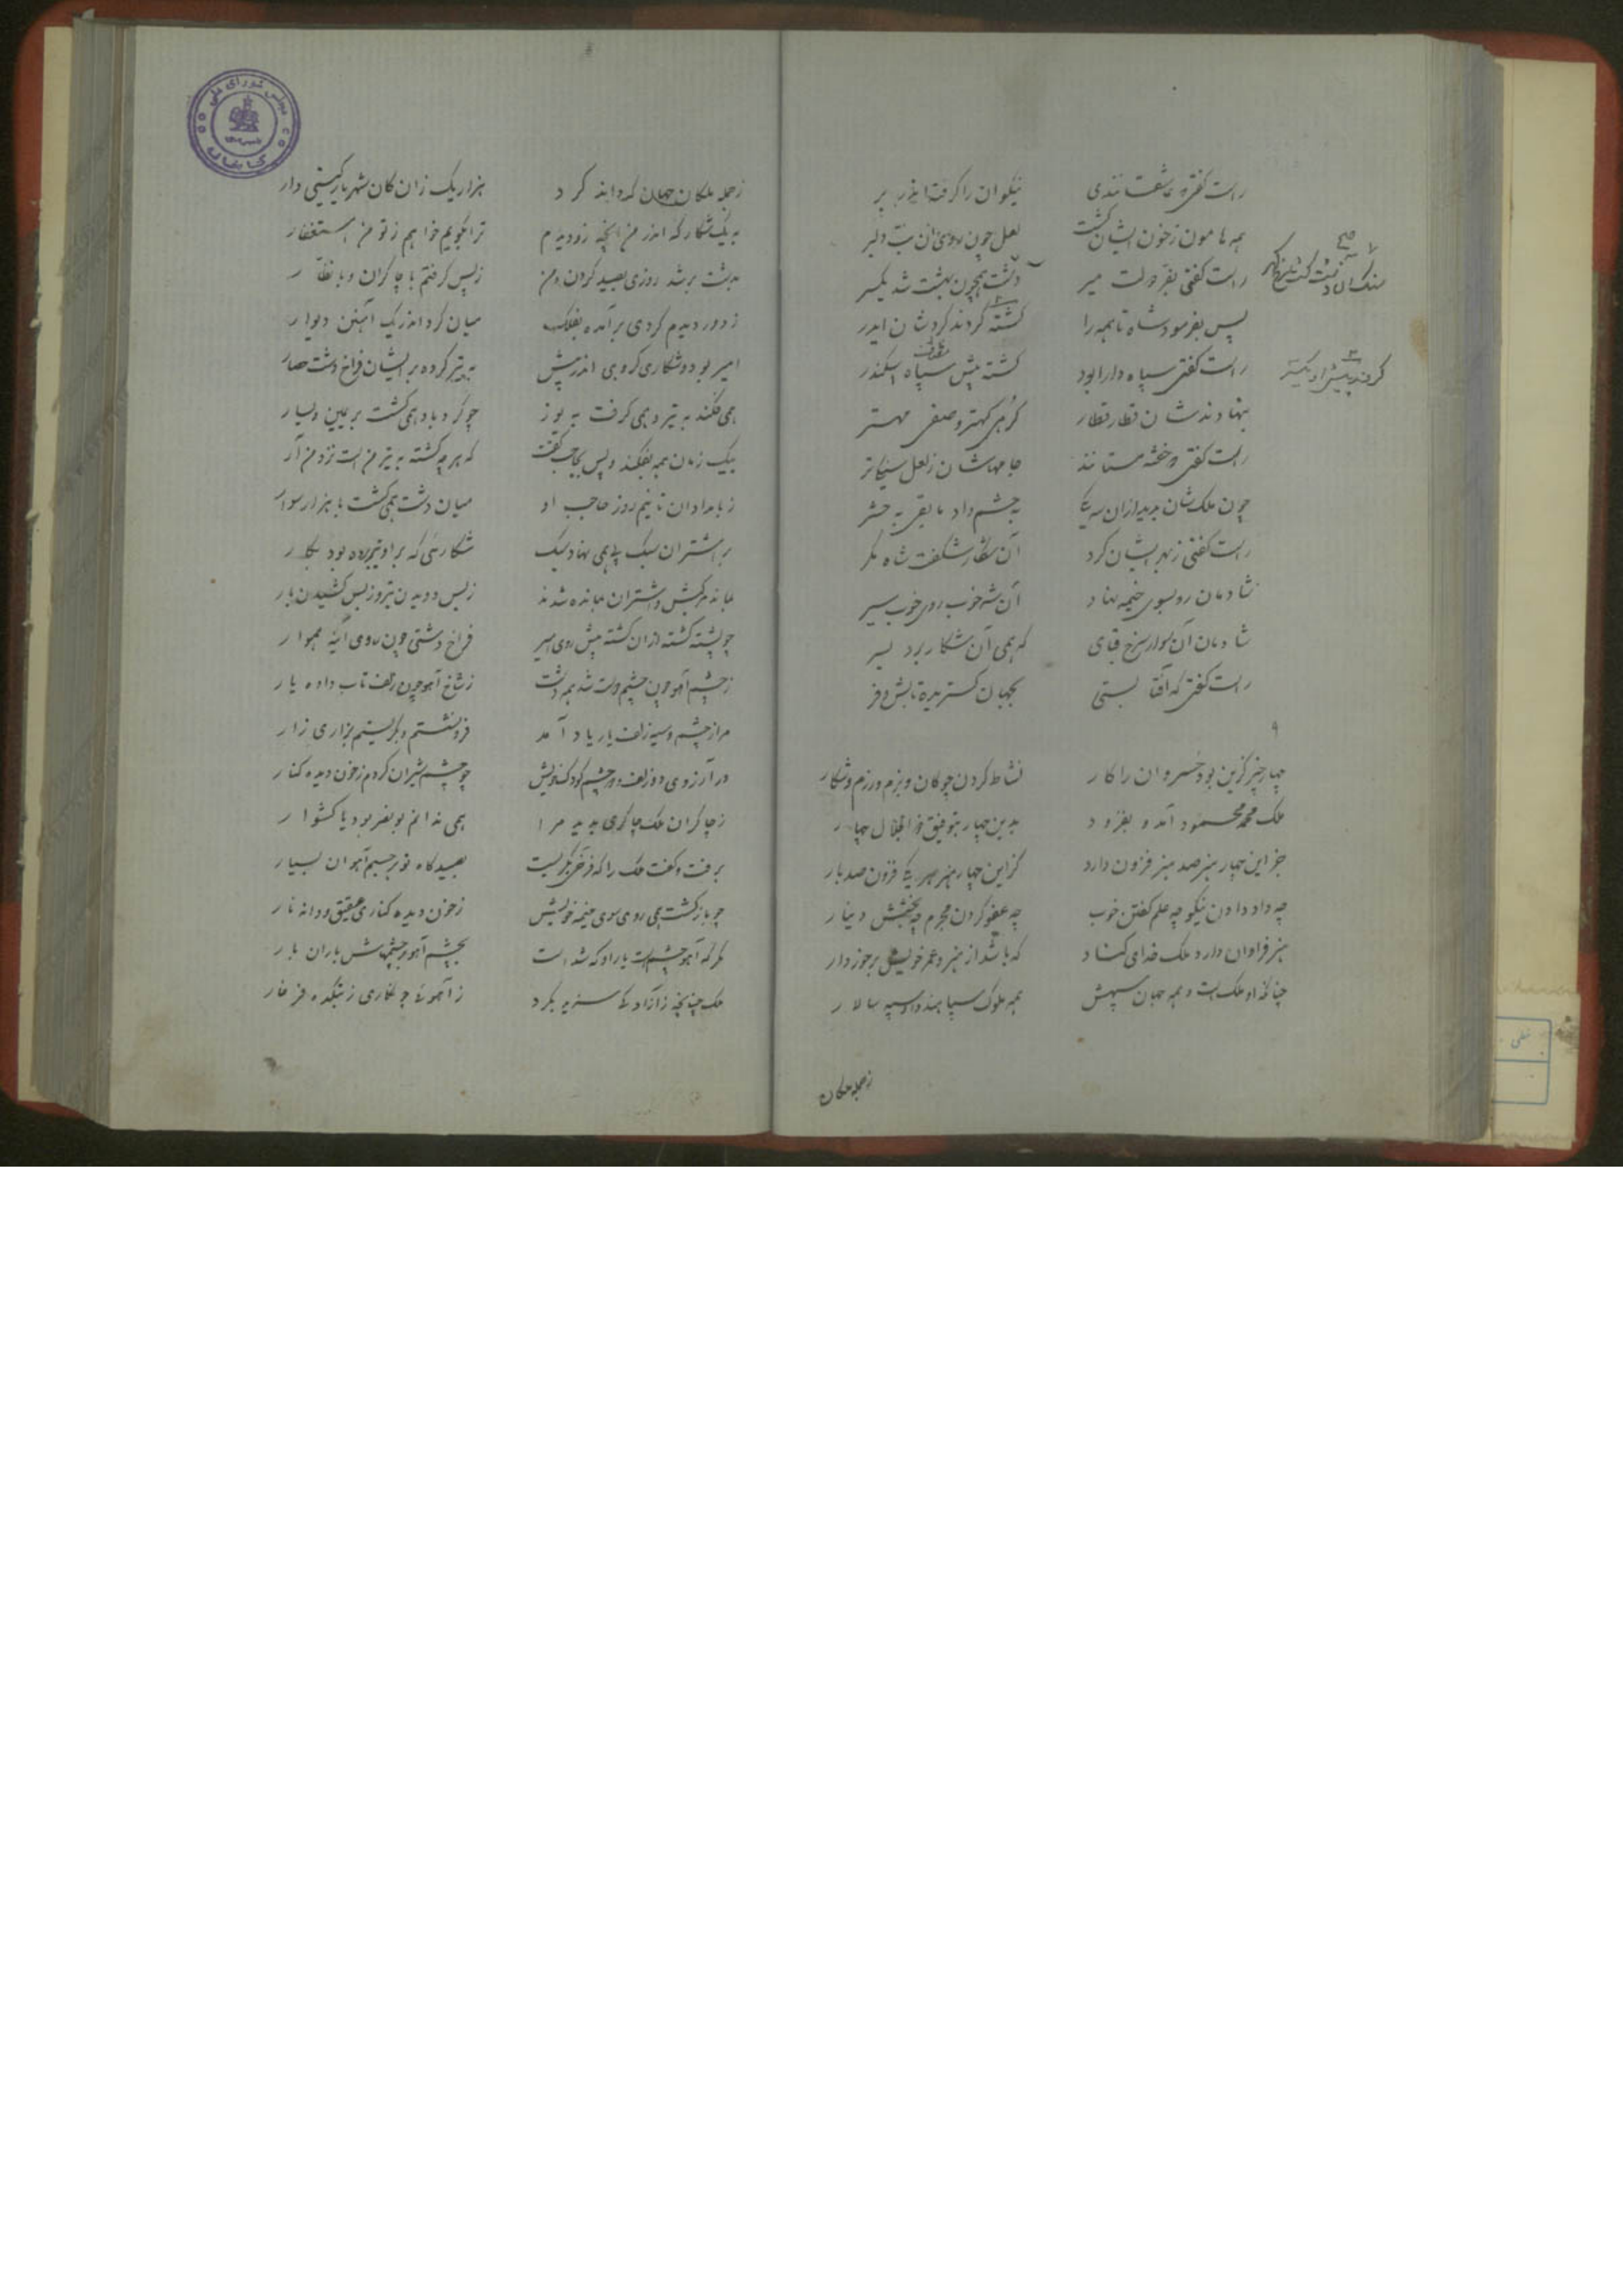 راست گفتی عاشقانندی نیکوان را گرفته اندر بر
همه هامون زخون ایشان گشت لعل چون روی آن بت دلبر
راست گفتی بفر دولت میر دشت همچون بهشت شد یکسر
پس بفرمود شاه تا همه را کشته کردند گردشان ایدر
راست گفتی سپاه دارا بود کشته پیش سپاه اسکندر
بنهادندشان قطار قطار گرهی کهتر و صفی مهتر
راست گفتی و خفته مستانند جامهاشان ز لعل سیکی تر
چون ملکشان بدید ازان سه یکی به حشم داد ما بقی به حشر
راست گفتی زبهر ایشان کرد آن شکار شگفت شاه مگر
شادمان رو بسوی خیمه نهاد آن شه خوب روی خوب سیر
شادمان آن سوار سرخ قبای که همی آن شکار برد بسر
راست گفتی که آفتابستی بجهان گستریده تابش و فر
۹
چهار چیز گزین بود خسروان را کار نشاط کردن چوگان و بزم و رزم و شکار
ملک محمد محمود آمد و بفزود بدین چهار بتوفیق ذو الجلال چهار
جز این چهار هنر صد هنر فزون دارد کز این چهار هنر هر یکی فزون صد بار
چه داد دادن نیکو چه علم گفتن خوب چه عفو کردن مجرم چه بخشش دینار
هنر فراوان دارد ملک خدای کناد که باشد از هنر و عمر خویش برخوردار
چنانکه او ملک است و همه جهان سپهش همه ملوک سپاهند و او سپه سالار
زجمله ملکان
زجمله ملکان جهان که داند کرد هزار یک زان کان شهریار گیتی دار
به یک شکار که اندر من آنچه زو دیدم ترا بگویم خواهم ز تو من استغفار
بدشت برشد روزی بصید کردن و من ز پس گرفتم با چاکران و با نظار
ز دور دیدم گردی برآمده بفلک میان گرد اندر یک آهنین دیوار
امیر بود و شکاری گروهی اندر پیش به تیر کرده بر ایشان فراخ دشت حصار
همی فکند به تیر و همی گرفت به یوز چو گرد باد همی گشت بر یمین و یسار
بیک زمان همه بفکند و پس بحاجب گفت که هر چه کشته به تیر من است نزد من آر
ز بامدادان تا نیم روز حاجب او میان دشت همی گشت با هزار سوار
بر اشتران سبک پی همی نهاد سبک شکارئی که بر او تیر برده بود بکار
بماند مرکبش و اشتران بمانده شدند ز بس دویدن تیز و ز بس کشیدن بار
چو پشته گشته ازان کشته پیش روی امیر فراخ دشتی چون روی آینه هموار
ز چشم آهو چون چشم دوست شد همه دشت ز شاخ آهو چون زلف تاب داده یار
مرا ز چشم و سیه زلف یار یاد آمد فرو نشستم و بگریستم بزاری زار
در آرزوی دو زلف و دو چشم کودک خویش چو چشم شیران کردم ز خون دیده کنار
ز چاکران ملک چاکری بدید مرا همی ندانم بونصر بود یا کشوار
برفت و گفت ملک را که فرخی بگریست بصیدگاه تو بر چشم آهوان بسیار
چو باز گشت همی روی سوی خیمه خویش ز خون دیده کناری عقیق و دانه نار
مگر که آهو چشم است یار او که شد است بچشم آهو بر چشمهاش باران بار
ملک چنانچه ز آزادگی سزید بکرد ز آهوئی چو نگاری ز بتکده فرخار
مجلس شورای ملی
کتابخانه